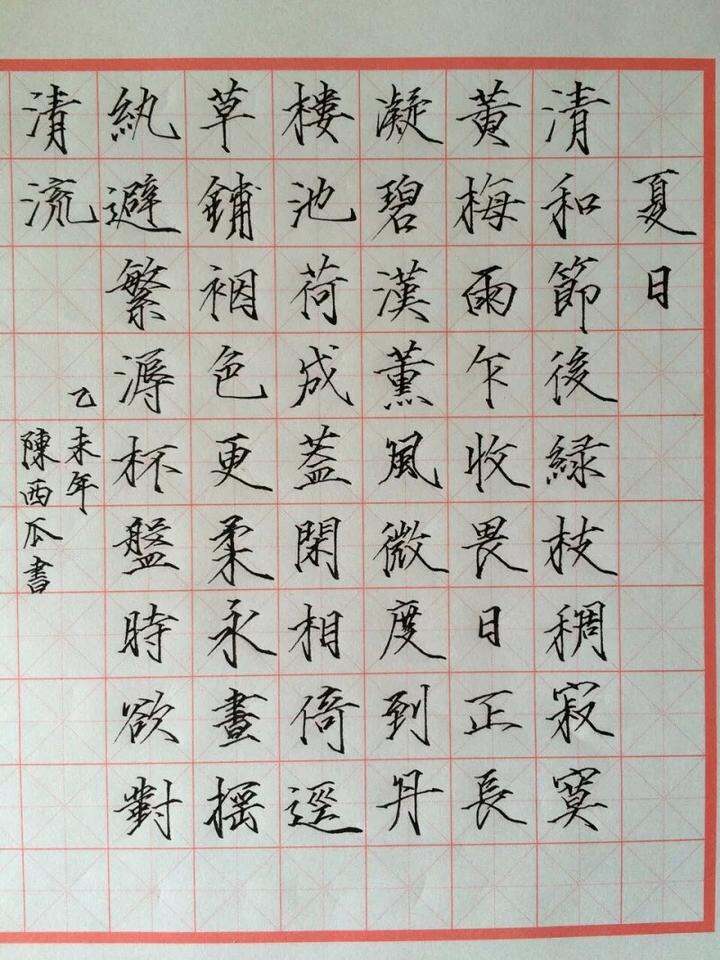 夏日
清和節後綠枝稠寂寞
黃梅雨乍收畏日正長
凝碧漢薰風微度到丹
樓池荷成蓋閑相倚逕
草鋪裀色更柔永晝搖
紈避繁溽杯盤時欲對
清流
乙未年
陳西瓜書